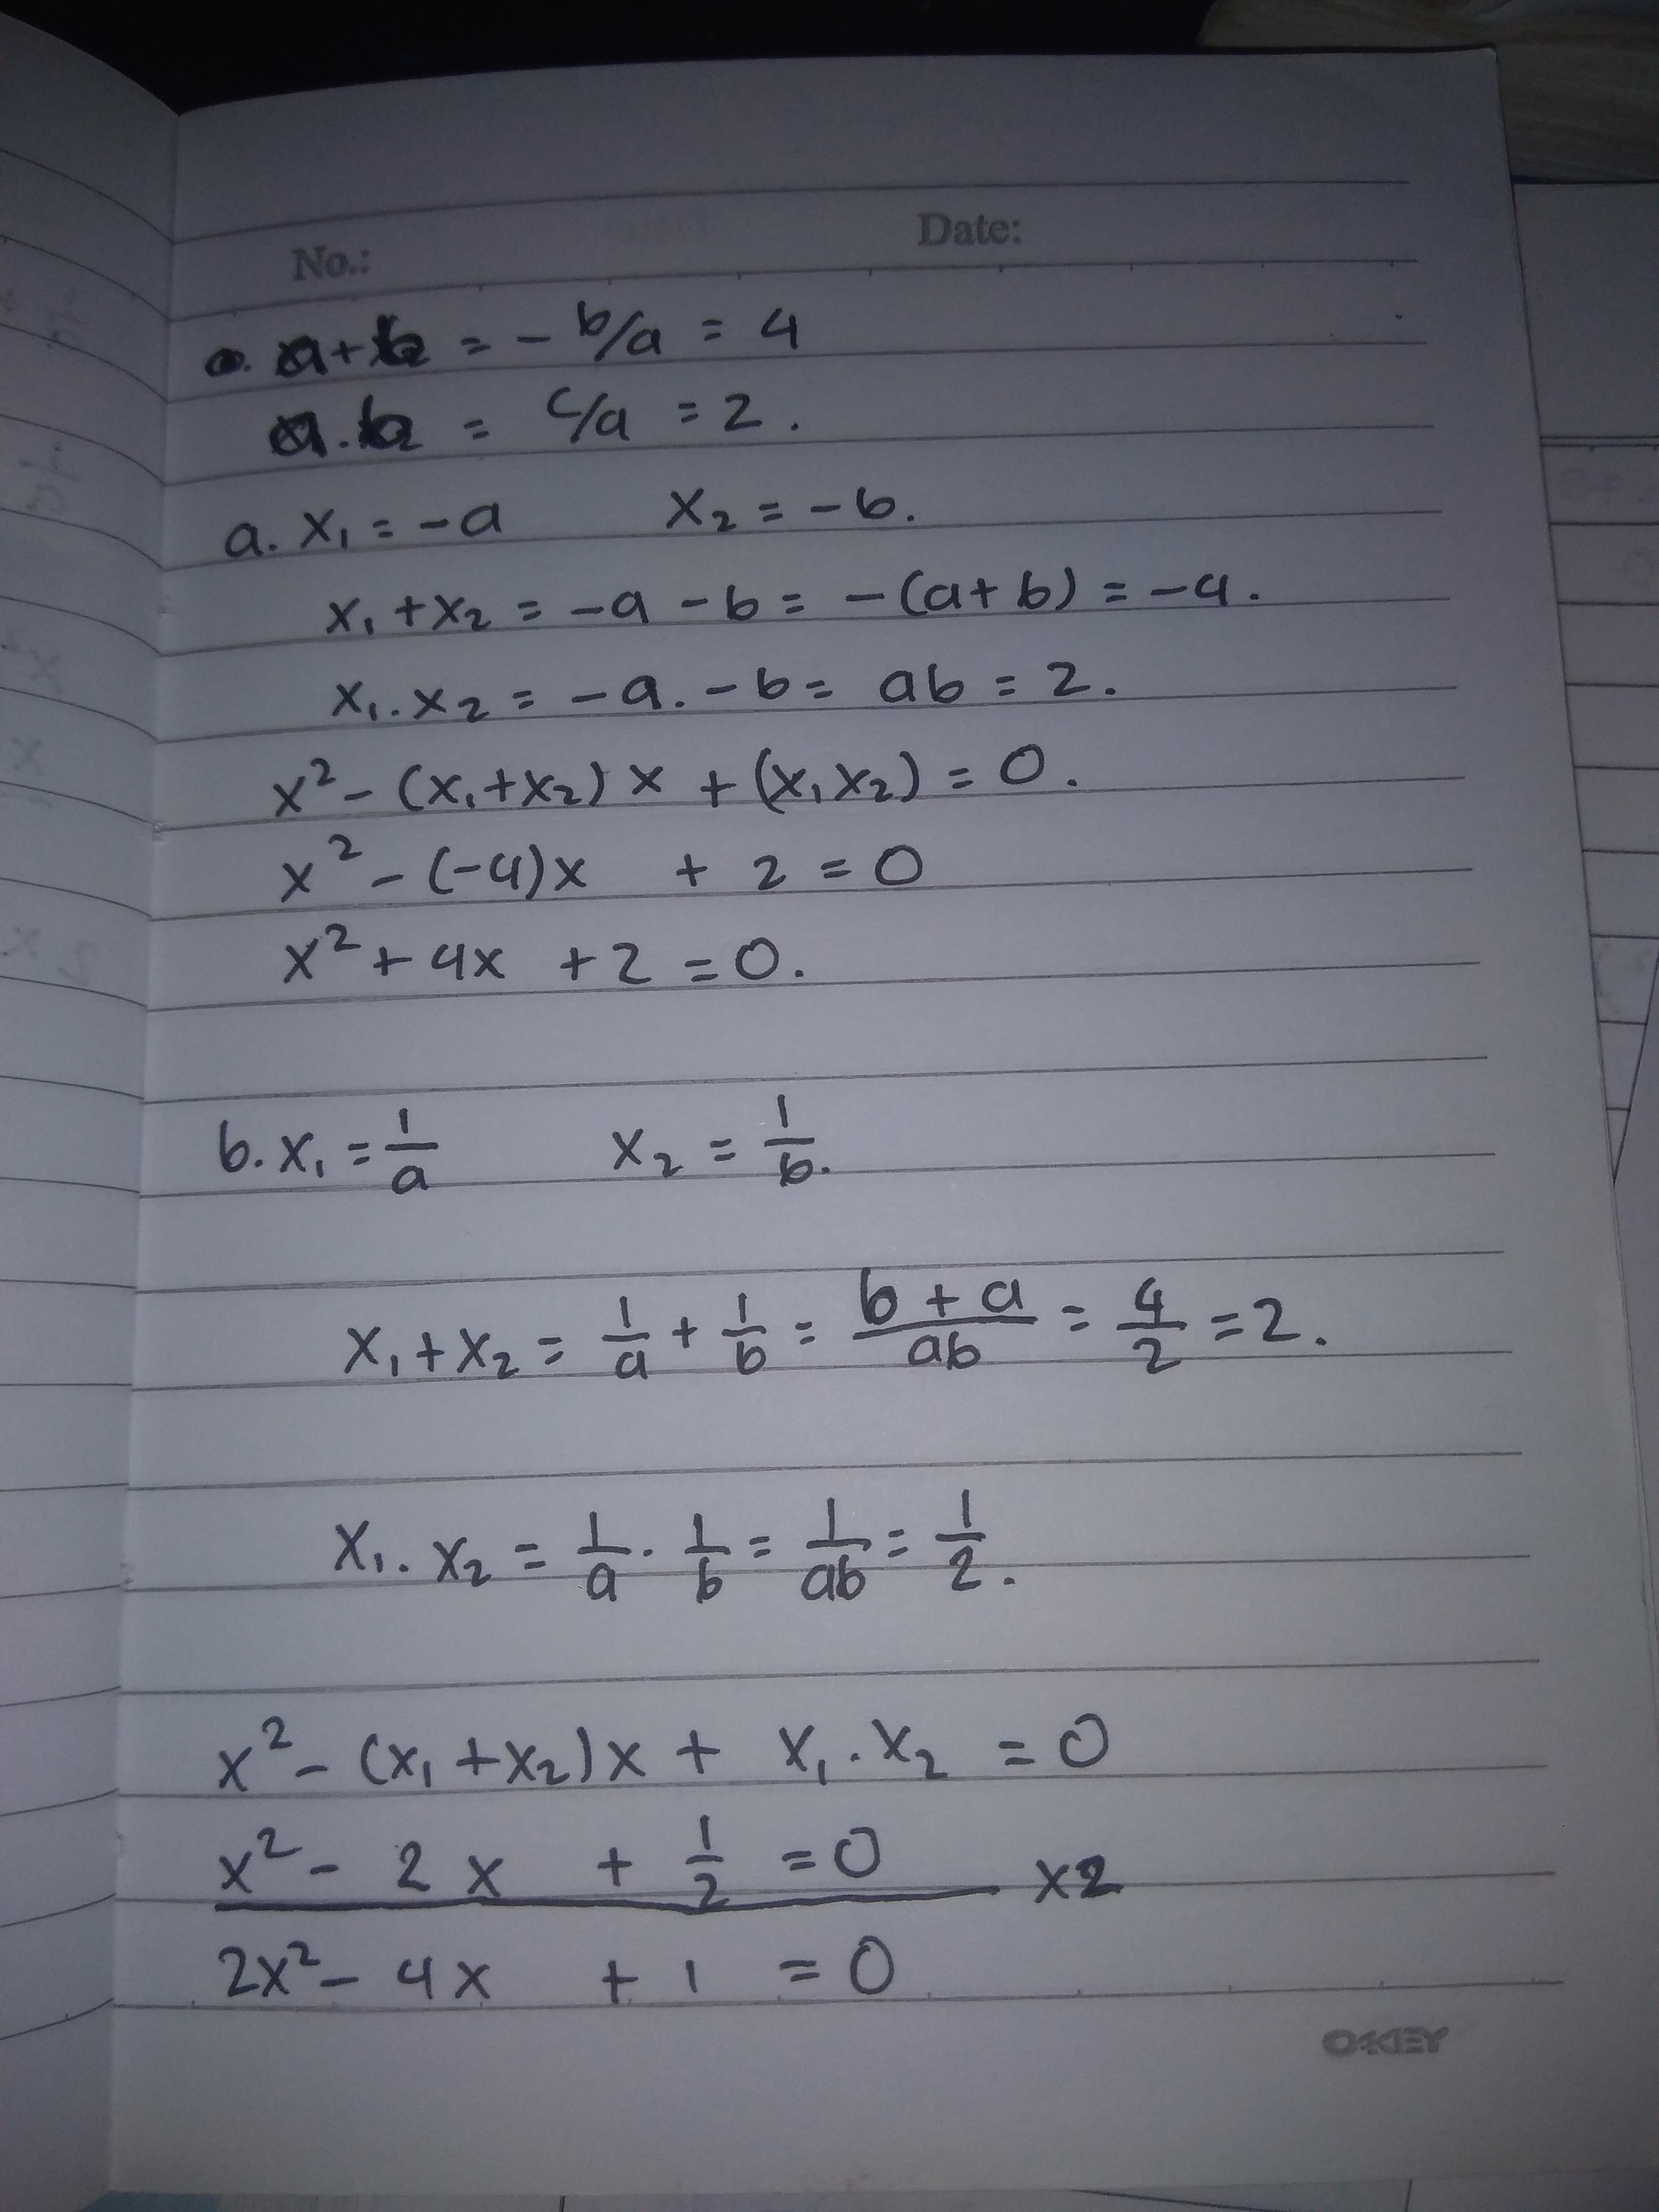 No.: Date:
a+b = - b/a = 4
a.b = c/a = 2.
a. x₁ = -a x₂ = -b.
x₁ + x₂ = -a - b = -(a+b) = -4.
x₁ . x₂ = -a . -b = ab = 2.
x² - (x₁+x₂) x + (x₁x₂) = 0.
x² - (-4)x + 2 = 0
x² + 4x + 2 = 0.
b. x₁ = 1/a x₂ = 1/b.
x₁ + x₂ = 1/a + 1/b = (b + a)/ab = 4/2 = 2.
x₁ . x₂ = 1/a . 1/b = 1/ab = 1/2.
x² - (x₁ + x₂)x + x₁ . x₂ = 0
x² - 2x + 1/2 = 0 x2
2x² - 4x + 1 = 0
OKEY